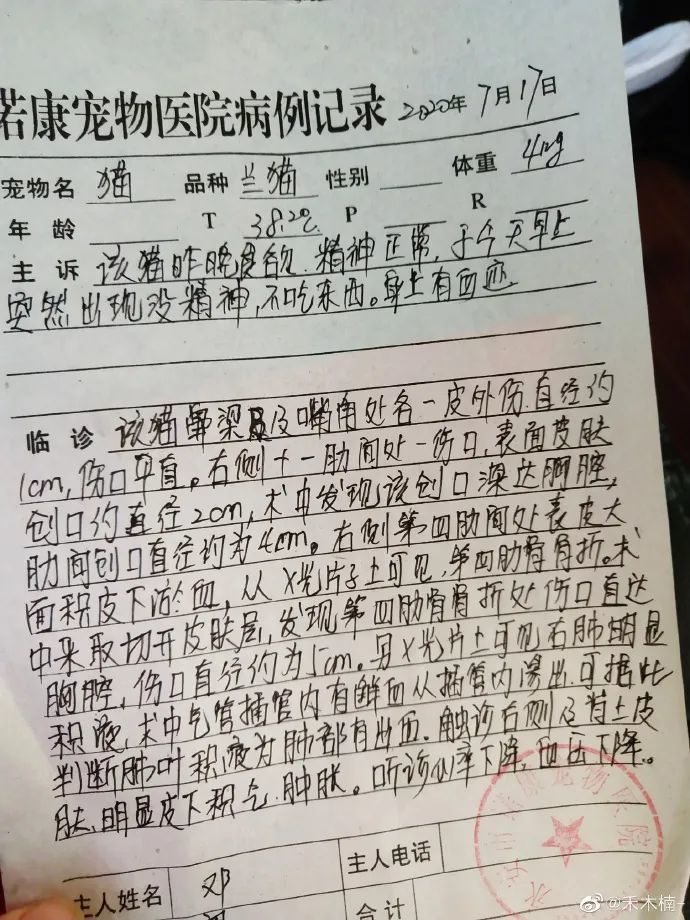 若康宠物医院病例记录 2020年 7月17日
宠物名 猫 品种 兰猫 性别 体重 4kg
年龄 T 38.2℃ P R
主诉 该猫昨晚食欲.精神正常,于今天早上
突然出现没精神,不吃东西。身上有血迹
临诊 该猫鼻梁及嘴角处各一皮外伤.直径约
1cm,伤口平直。右侧十一肋间处一伤口,表面皮肤
创口约直径2cm,术中发现该创口深达胸腔,
肋间创口直径约为4cm。右侧第四肋间处表皮大
面积皮下淤血,从X光片子上可见,第四肋骨骨折。术
中采取切开皮肤层,发现第四肋骨骨折处伤口直达
胸腔,伤口直径约为5cm。另X光片上可见右肺明显
积液,术中气管插管内有鲜血从插管内涌出.可据此
判断肺叶积液为肺部有出血.触诊右侧及背上皮
肤,明显皮下积气.肿胀。听诊心率下降,血压下降。
主人姓名 邓 主人电话
合计
宠物医院
@禾木楠-